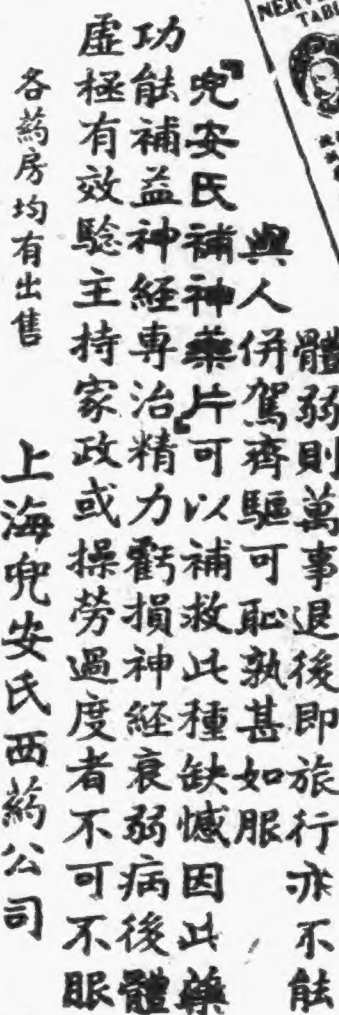 NERV
TAB
體弱則萬事退後即旅行亦不能
與人併駕齊驅可恥孰甚如服
『兜安氏補神藥片』可以補救此種缺憾因此藥
功能補益神經專治精力虧損神經衰弱病後體
虛極有效驗主持家政或操勞過度者不可不服
各藥房均有出售
上海兜安氏西藥公司